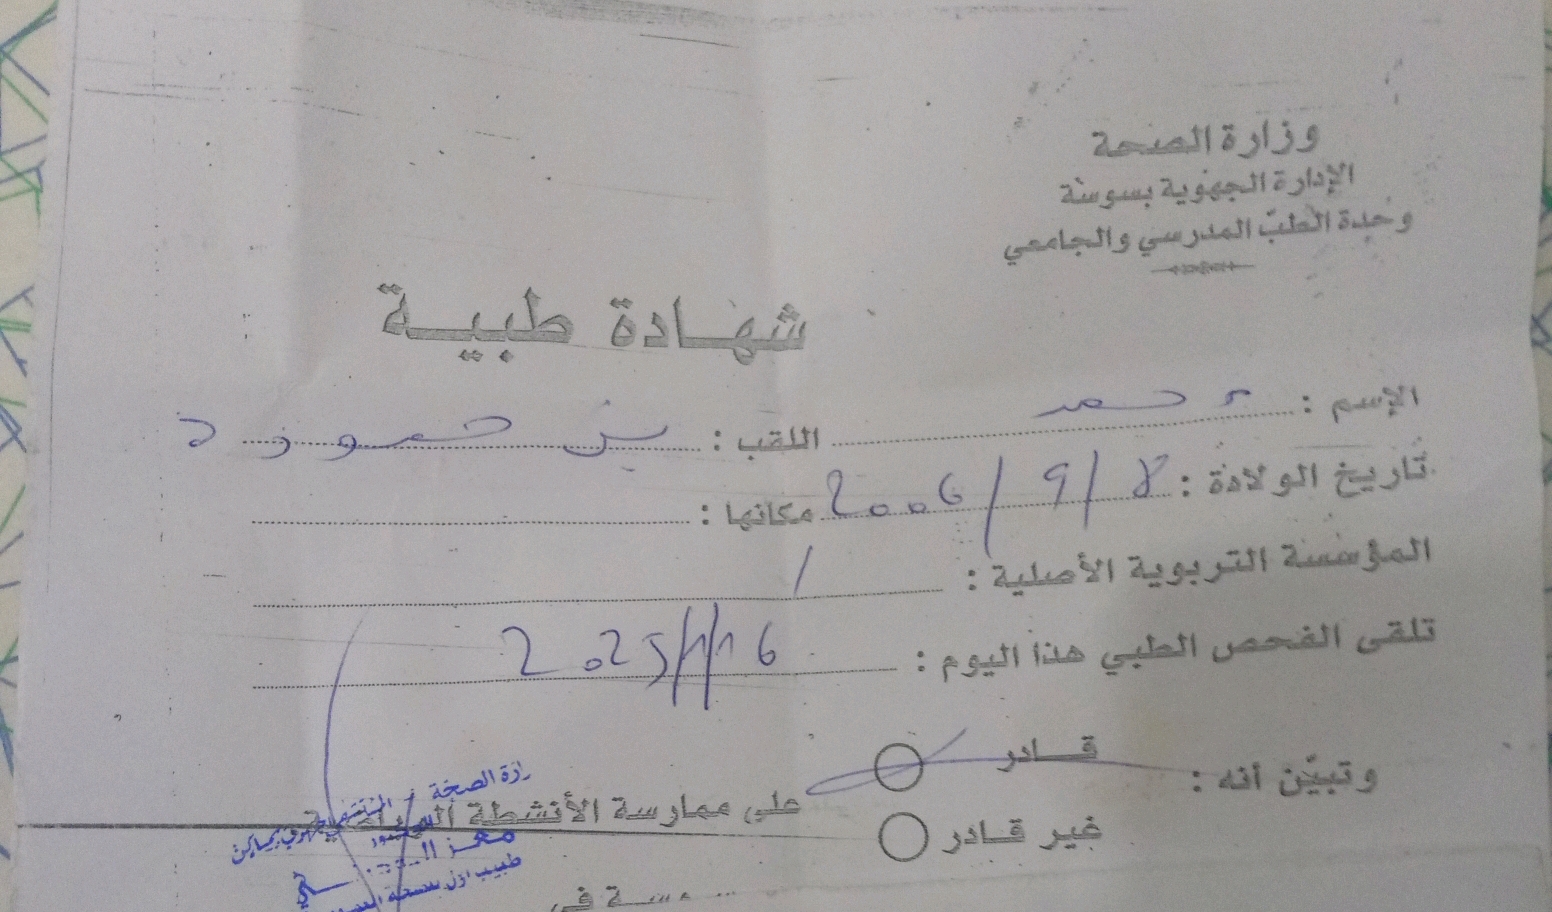 وزارة الصحة
الإدارة الجهوية بسوسة
وحدة الطبّ المدرسي والجامعي
شهادة طبية
الإسم : محمد اللقب : بن حمودة
تاريخ الولادة : 8 / 9 / 2006 مكانها :
المؤسسة التربوية الأصلية : /
تلقى الفحص الطبي هذا اليوم : 2025/11/16
وتبيّن أنه :
قادر
غير قادر
على ممارسة الأنشطة
الصحة
معز
طبيب أول